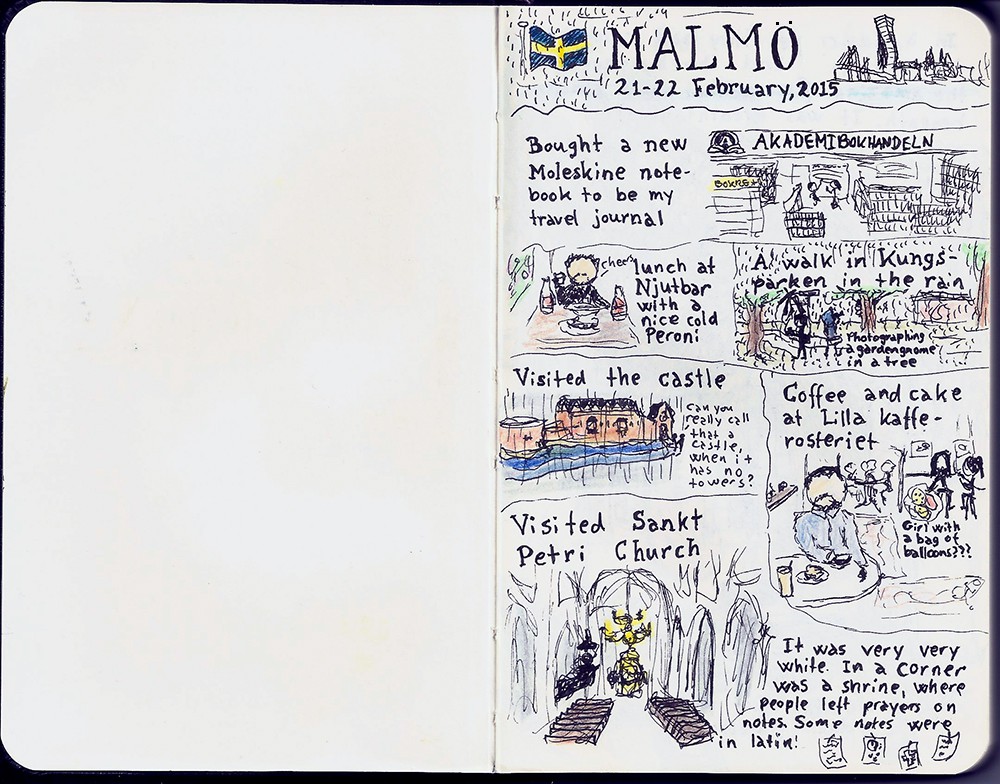 MALMÖ
21-22 February, 2015
Bought a new
Moleskine note-
book to be my
travel journal
AKADEMIBOKHANDELN
BOKREA
cheers
lunch at
Njutbar
with a
nice cold
Peroni
A walk in Kungs-
parken in the rain
Photographing
a gardengnome
in a tree
Visited the castle
Can you
really call
that a
castle,
when it
has no
towers?
Coffee and cake
at Lilla kaffe-
rosteriet
Girl with
a bag of
balloons???
Visited Sankt
Petri Church
It was very very
white. In a corner
was a shrine, where
people left prayers on
notes. Some notes were
in latin!